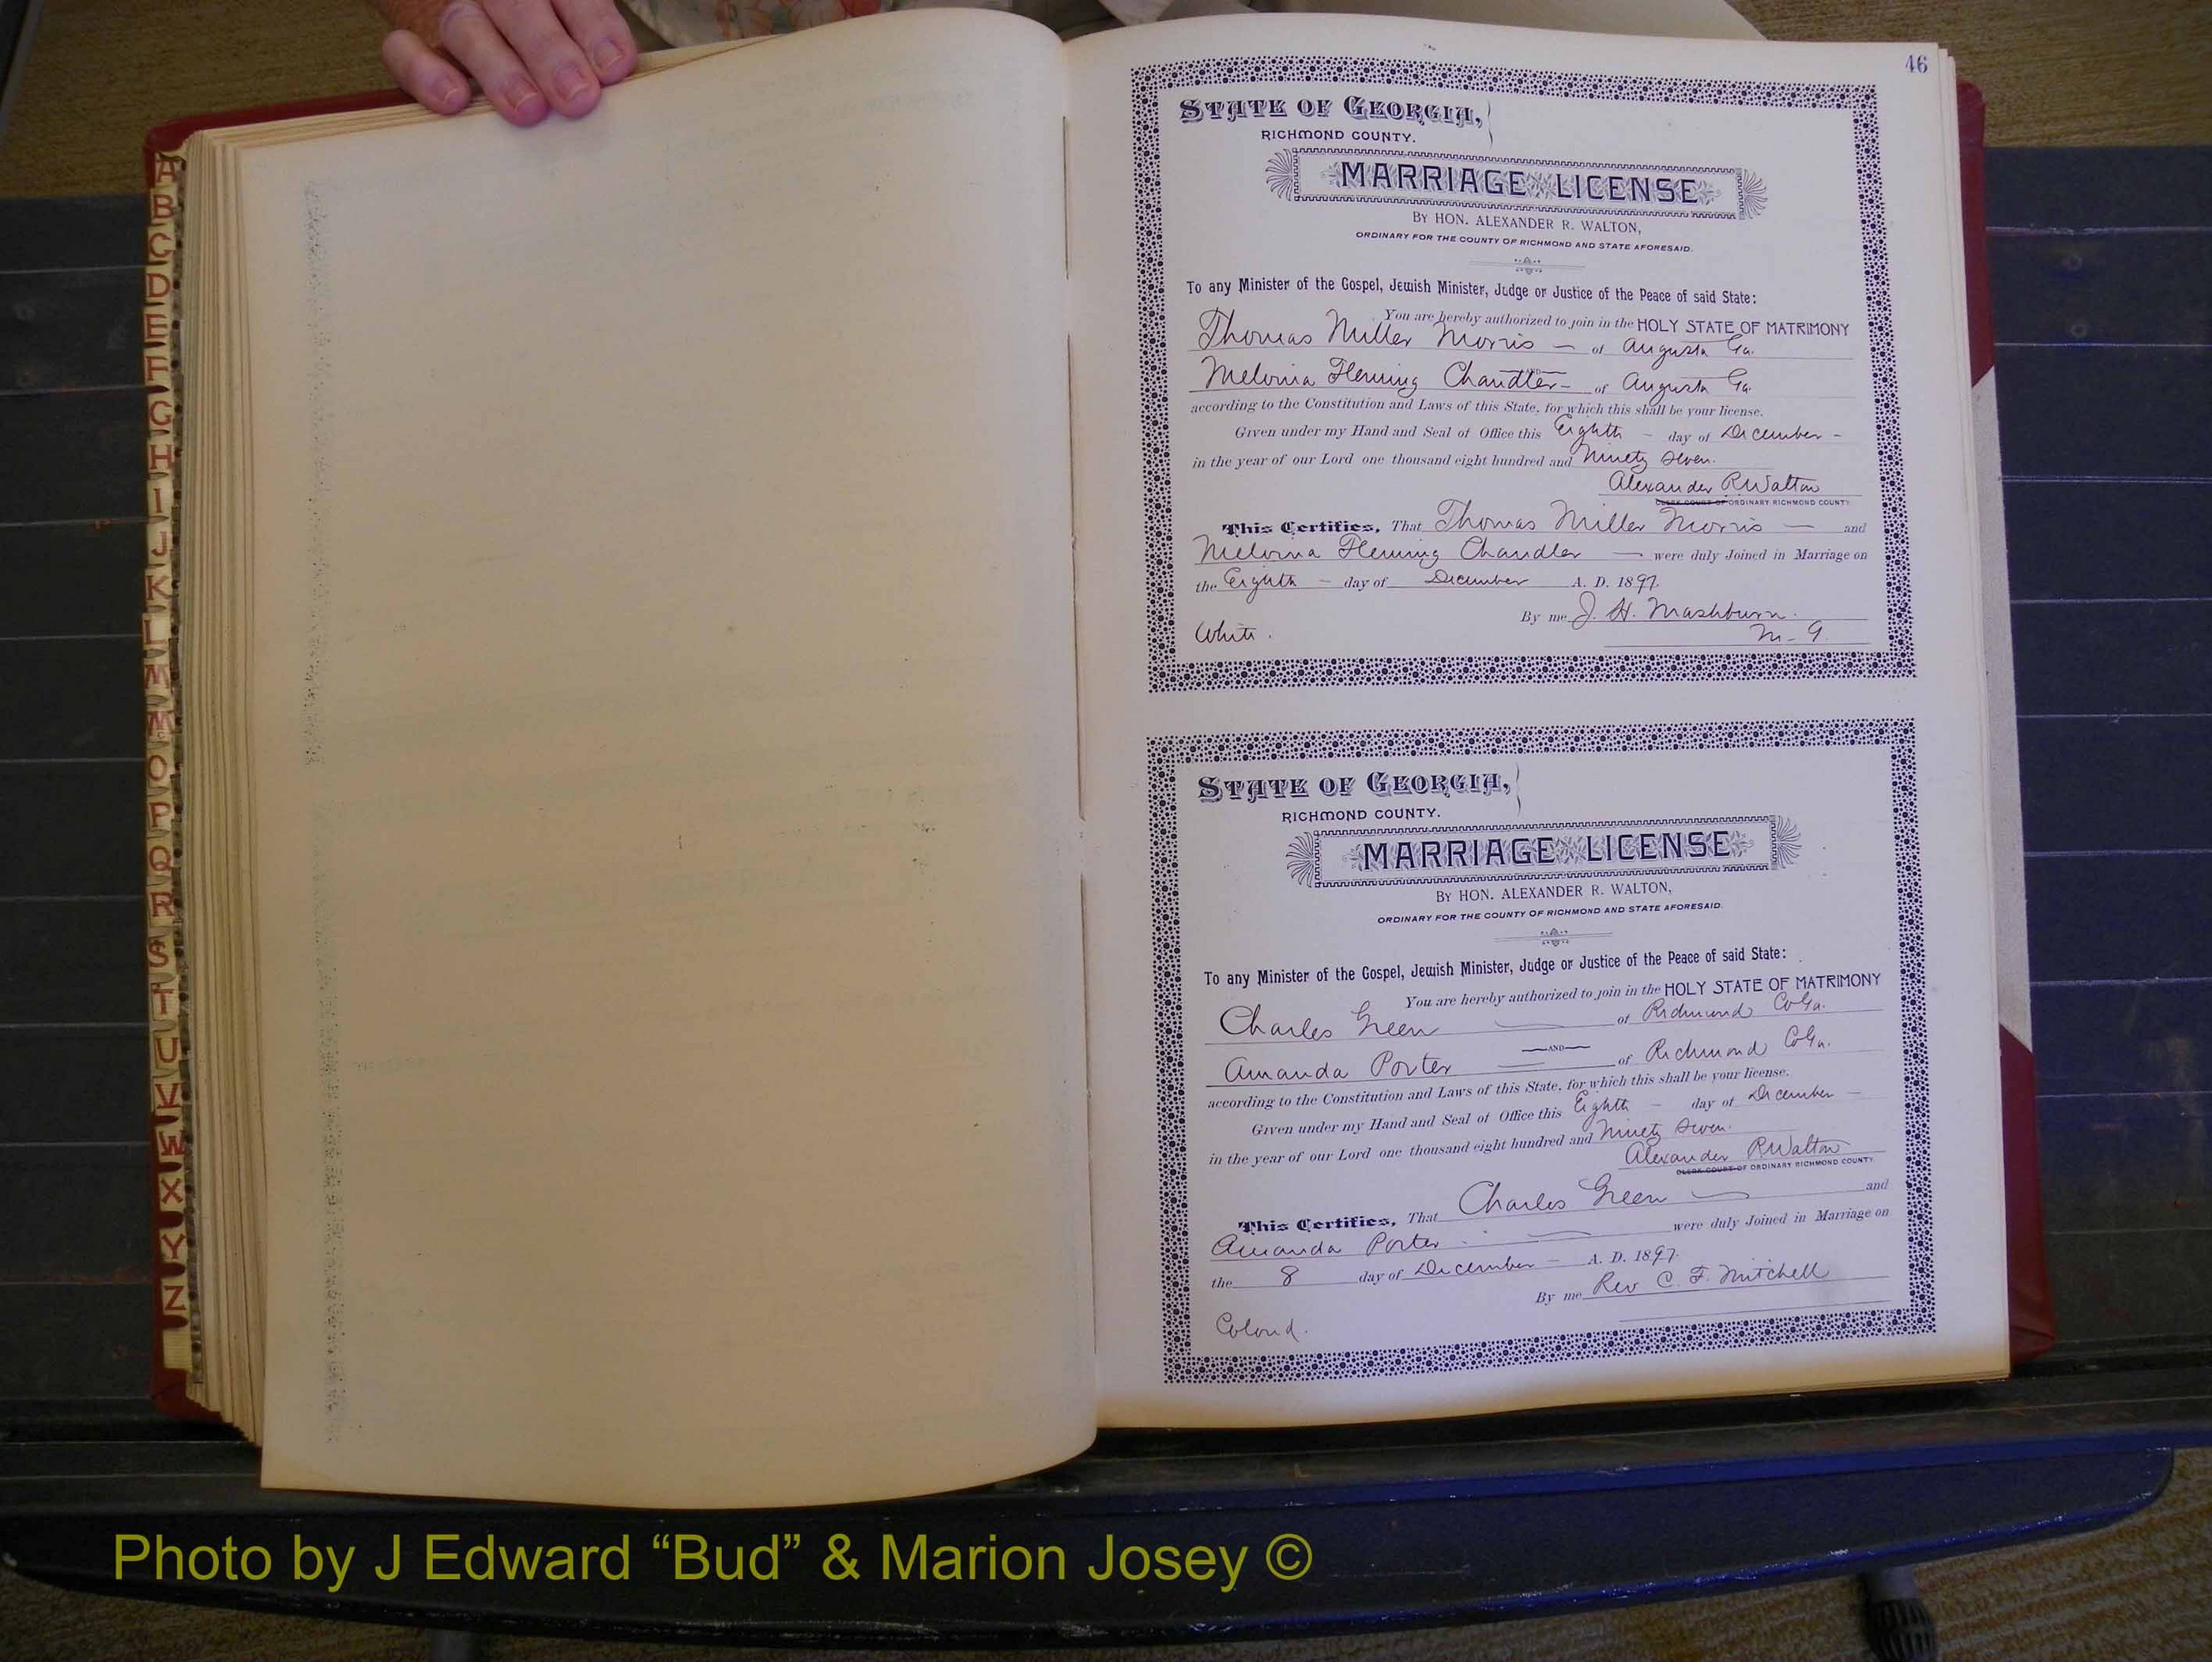 46
STATE OF GEORGIA,
RICHMOND COUNTY.
MARRIAGE LICENSE
BY HON. ALEXANDER R. WALTON,
ORDINARY FOR THE COUNTY OF RICHMOND AND STATE AFORESAID.
To any Minister of the Gospel, Jewish Minister, Judge or Justice of the Peace of said State:
You are hereby authorized to join in the HOLY STATE OF MATRIMONY
Thomas Miller Morris — of Augusta Ga.
AND
Melvina Fleming Chandler — of Augusta Ga.
according to the Constitution and Laws of this State, for which this shall be your license.
Given under my Hand and Seal of Office this Eighth — day of December —
in the year of our Lord one thousand eight hundred and Ninety Seven.
Alexander R Walton
CLERK COURT OF ORDINARY RICHMOND COUNTY
This Certifies, That Thomas Miller Morris — and
Melvina Fleming Chandler — were duly Joined in Marriage on
the Eighth — day of December A. D. 1897.
By me J. H. Mashburn.
White. M. G.
STATE OF GEORGIA,
RICHMOND COUNTY.
MARRIAGE LICENSE
BY HON. ALEXANDER R. WALTON,
ORDINARY FOR THE COUNTY OF RICHMOND AND STATE AFORESAID.
To any Minister of the Gospel, Jewish Minister, Judge or Justice of the Peace of said State:
You are hereby authorized to join in the HOLY STATE OF MATRIMONY
Charles Green — of Richmond Co Ga.
AND
Amanda Porter — of Richmond Co Ga.
according to the Constitution and Laws of this State, for which this shall be your license.
Given under my Hand and Seal of Office this Eighth — day of December —
in the year of our Lord one thousand eight hundred and Ninety Seven.
Alexander R Walton
CLERK COURT OF ORDINARY RICHMOND COUNTY
This Certifies, That Charles Green — and
Amanda Porter — were duly Joined in Marriage on
the 8 day of December — A. D. 1897.
By me Rev C. F. Mitchell
Colored.
A
B
C
D
E
F
G
H
I
J
K
L
M
Mc
O
P
Q
R
S
T
U
V
W
X
Y
Z
Photo by J Edward “Bud” & Marion Josey ©